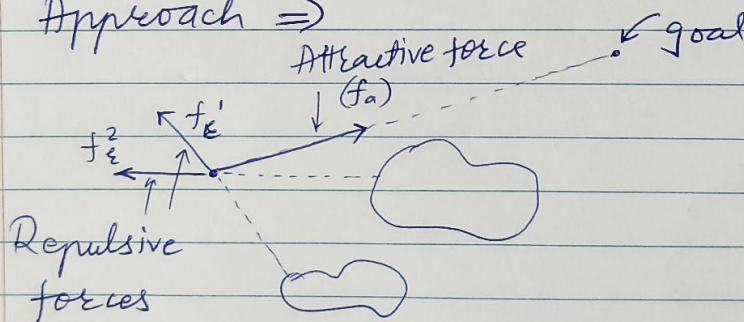 Approach ⇒
goal
Attractive force
(fa)
f¹ε
f²ε
Repulsive
forces